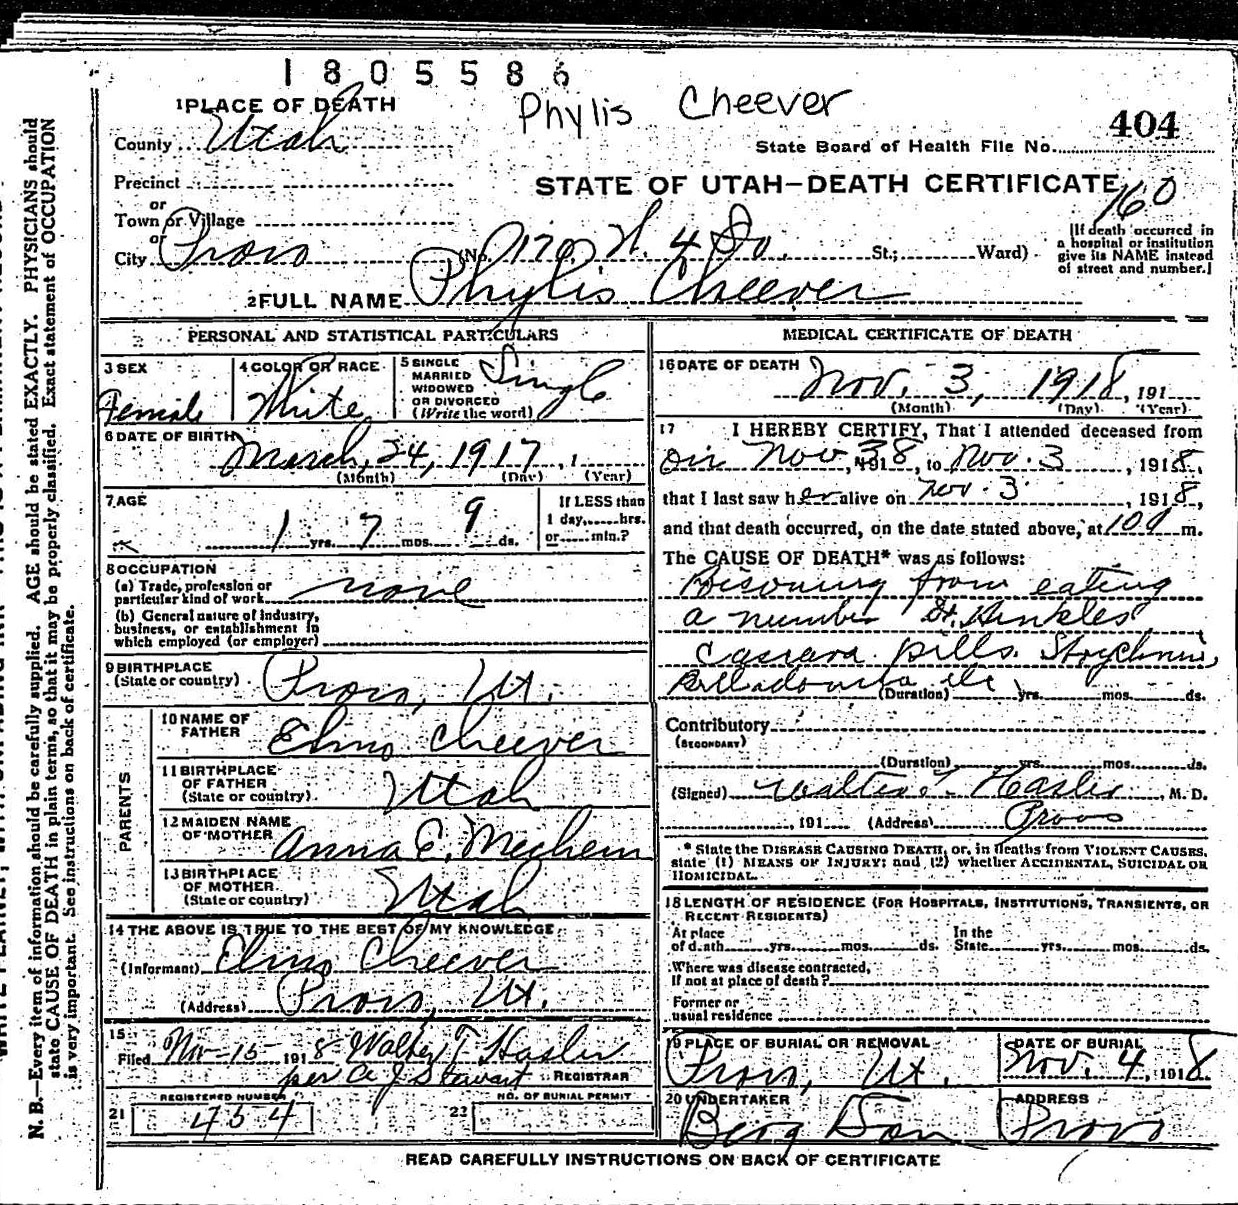 1805586
Phylis Cheever
404
1 PLACE OF DEATH
County Utah
State Board of Health File No.
Precinct
STATE OF UTAH—DEATH CERTIFICATE
160
or
Town or Village
or
City Provo (No. 4 So. St.; Ward)
[If death occurred in
a hospital or institution
give its NAME instead
of street and number.]
2 FULL NAME Phylis Cheever
PERSONAL AND STATISTICAL PARTICULARS
3 SEX
Female
4 COLOR OR RACE
White
5 SINGLE
MARRIED
WIDOWED
OR DIVORCED
(Write the word)
Single
6 DATE OF BIRTH
March, 24, 1917, 1
(Month) (Day) (Year)
7 AGE
1 yrs. 7 mos. 9 ds.
If LESS than
1 day, hrs.
or min.?
8 OCCUPATION
(a) Trade, profession or
particular kind of work none
(b) General nature of industry,
business, or establishment in
which employed (or employer)
9 BIRTHPLACE
(State or country) Provo, Ut.
PARENTS
10 NAME OF
FATHER Elmo Cheever
11 BIRTHPLACE
OF FATHER
(State or country) Utah
12 MAIDEN NAME
OF MOTHER Anna E. Mechem
13 BIRTHPLACE
OF MOTHER
(State or country) Utah
14 THE ABOVE IS TRUE TO THE BEST OF MY KNOWLEDGE
(Informant) Elmo Cheever
(Address) Provo, Ut.
15
Filed Nov-15- 1918 Walter T Hasler
per A J Stewart REGISTRAR
REGISTERED NUMBER
21 454
NO. OF BURIAL PERMIT
22
MEDICAL CERTIFICATE OF DEATH
16 DATE OF DEATH
Nov. 3, 1918, 191
(Month) (Day) (Year)
17 I HEREBY CERTIFY, That I attended deceased from
Nov 3, 1918, to Nov. 3, 1918,
that I last saw her alive on Nov. 3, 1918,
and that death occurred, on the date stated above, at m.
The CAUSE OF DEATH* was as follows:
Poisoning from eating
a number Dr. Hinkles
Cascara pills. Strychnin,
Belladonna etc
(Duration) yrs. mos. ds.
Contributory
(SECONDARY)
(Duration) yrs. mos. ds.
(Signed) Walter T Hasler, M. D.
, 191 (Address) Provo
* State the DISEASE CAUSING DEATH, or, in deaths from VIOLENT CAUSES,
state (1) MEANS OF INJURY; and (2) whether ACCIDENTAL, SUICIDAL OR
HOMICIDAL.
18 LENGTH OF RESIDENCE (FOR HOSPITALS, INSTITUTIONS, TRANSIENTS, OR
RECENT RESIDENTS)
At place
of death yrs. mos. ds.
In the
State yrs. mos. ds.
Where was disease contracted,
If not at place of death?
Former or
usual residence
19 PLACE OF BURIAL OR REMOVAL
Provo, Ut.
DATE OF BURIAL
Nov. 4, 1918
20 UNDERTAKER
Berg Son
ADDRESS
Provo
READ CAREFULLY INSTRUCTIONS ON BACK OF CERTIFICATE
N. B.—Every item of information should be carefully supplied. AGE should be stated EXACTLY. PHYSICIANS should
state CAUSE OF DEATH in plain terms, so that it may be properly classified. Exact statement of OCCUPATION
is very important. See instructions on back of certificate.